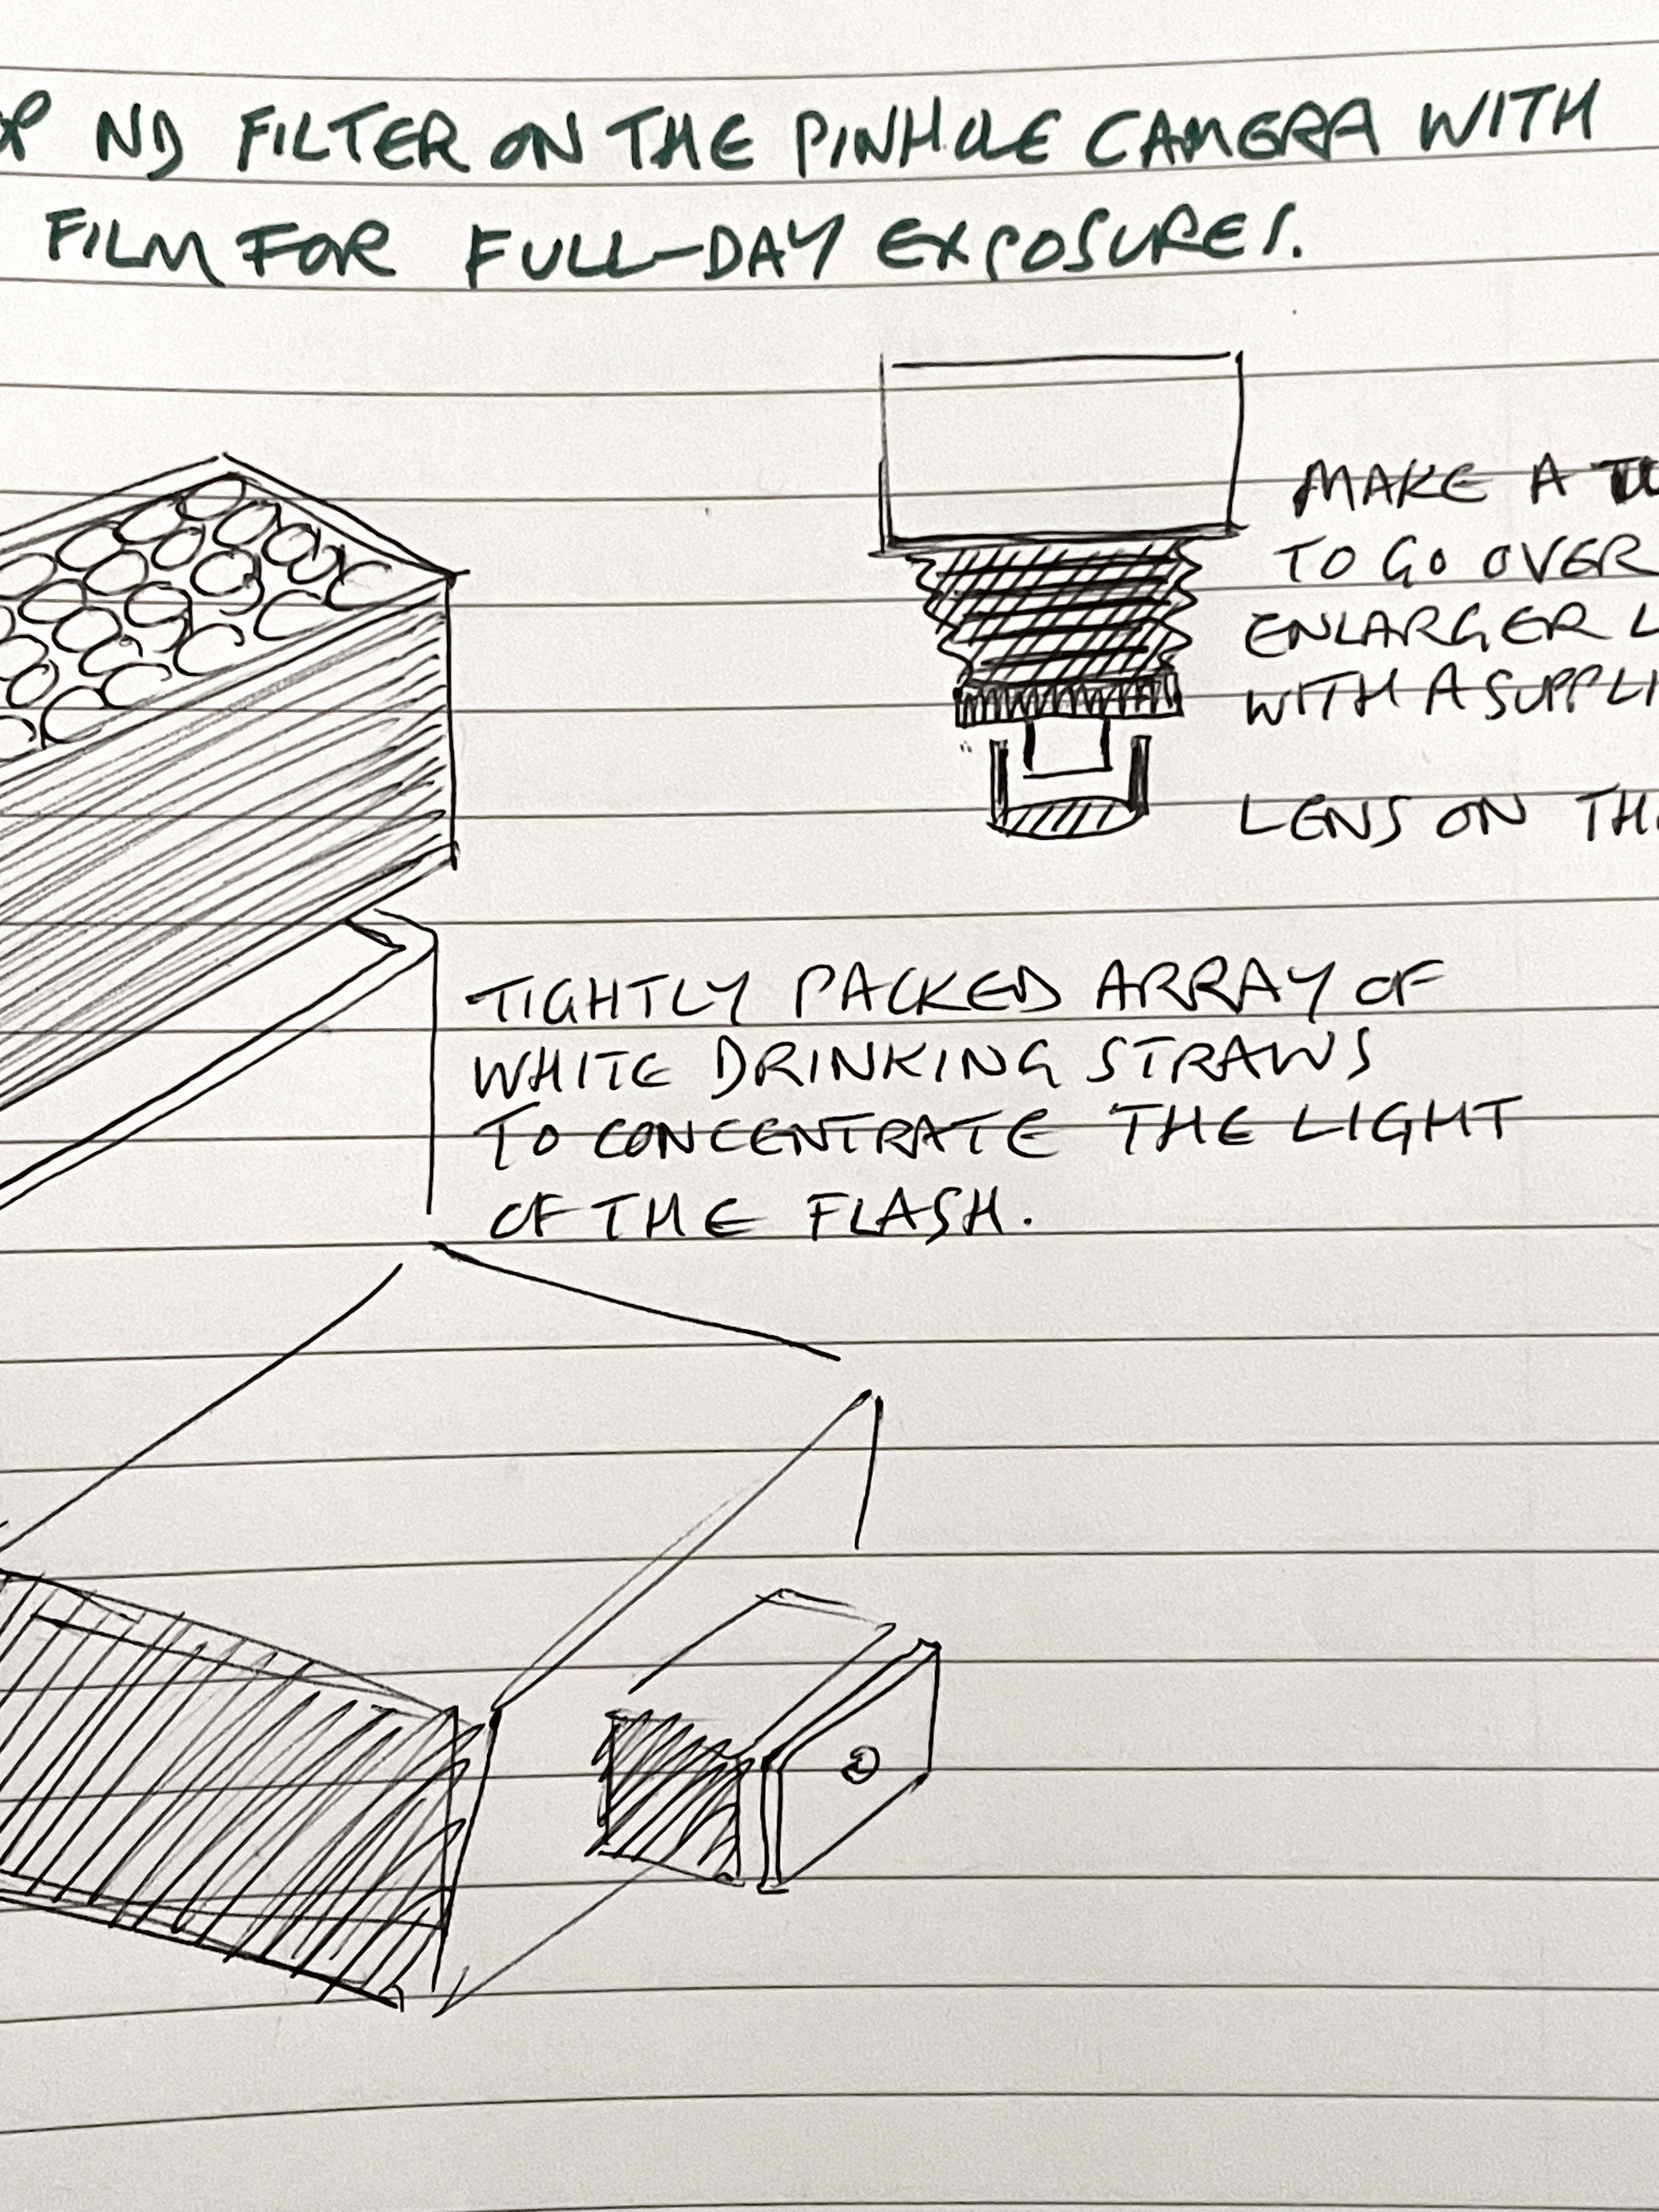 ND FILTER ON THE PINHOLE CAMERA WITH
FILM FOR FULL-DAY EXPOSURES.
MAKE A
TO GO OVER
ENLARGER
WITH A
LENS ON
TIGHTLY PACKED ARRAY OF
WHITE DRINKING STRAWS
TO CONCENTRATE THE LIGHT
OF THE FLASH.